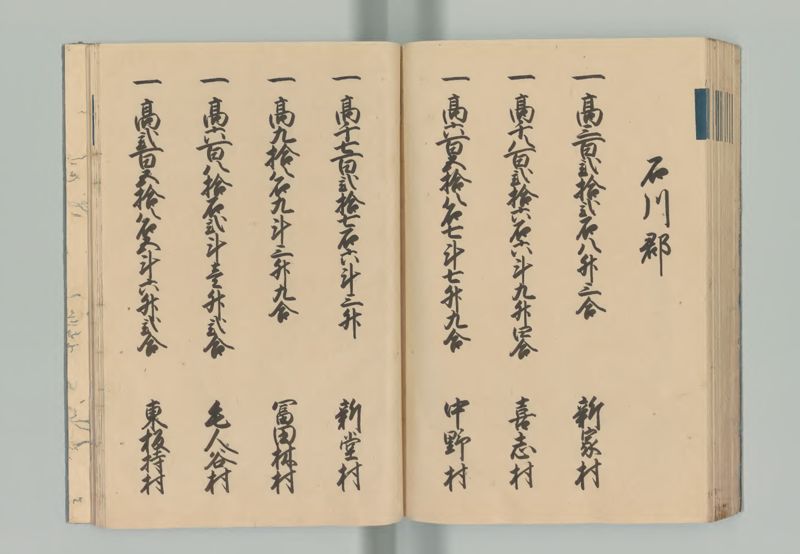 石川郡
一 高三百弐拾弐石八升三合 新家村
一 高千八百弐拾六石六斗九升四合 喜志村
一 高六百五拾八石七斗七升九合 中野村
一 高千七百弐拾七石六斗三升 新堂村
一 高九拾八石九斗三升九合 冨田林村
一 高六百八拾石弐斗壱升弐合 毛人谷村
一 高弐百五拾八石五斗六升弐合 東板持村